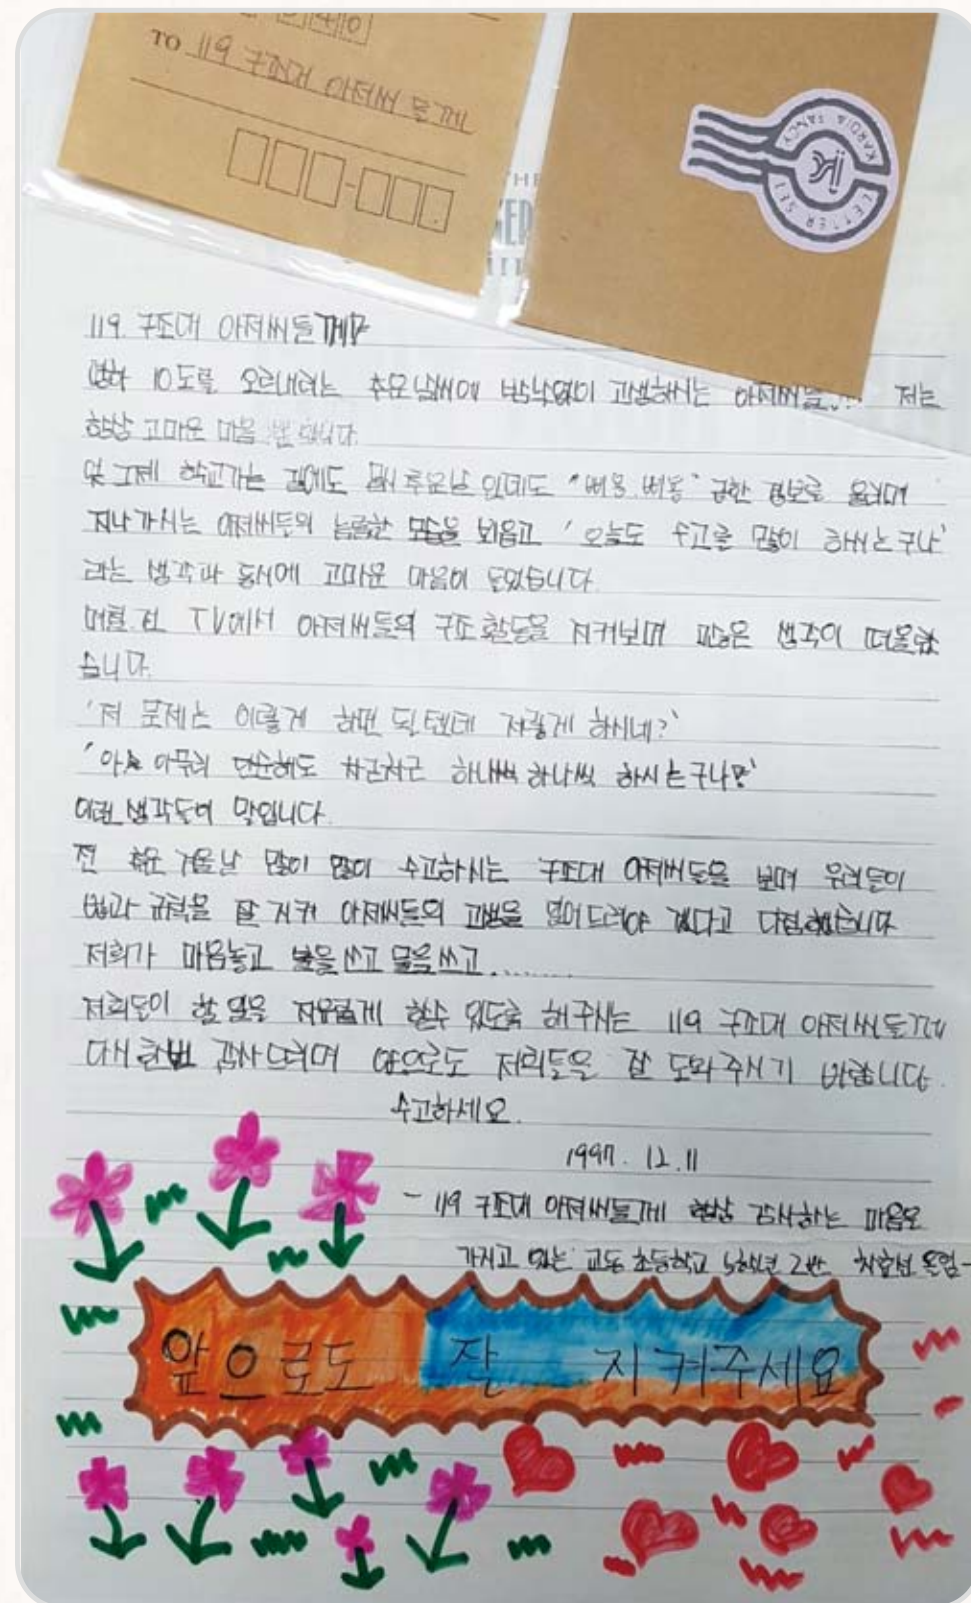 TO 119 구조대 아저씨들께
KARDIA FANCY
LETTER SET
119 구조대 아저씨들께
영하 10도를 오르내리는 추운 날씨에 밤낮없이 고생하시는 아저씨들.. 저는
항상 고마운 마음 뿐 입니다.
몇 그제 학교가는 길에도 몹시 추운날 인데도 "삐용 삐용" 급한 경보를 울리며
지나가시는 아저씨들의 늠름한 모습을 뵈옵고 '오늘도 수고를 많이 하시는구나'
라는 생각과 동시에 고마운 마음이 들었습니다.
며칠 전 TV에서 아저씨들의 구조활동을 지켜보며 많은 생각이 떠올랐
습니다.
'저 문제는 이렇게 하면 될텐데 저렇게 하시네?'
'아 아무리 단순해도 차근차근 하나씩 하나씩 하시는구나'
이런 생각들이 말입니다.
전 추운 겨울날 많이 많이 수고하시는 구조대 아저씨들을 보며 우리들이
법과 규칙을 잘 지켜 아저씨들의 고생을 덜어드려야 겠다고 다짐했습니다
저희가 마음놓고 불을 쓰고 물을 쓰고........
저희들이 할 일을 자유롭게 할수 있도록 해주시는 119 구조대 아저씨들께
다시 한번 감사드리며 앞으로도 저희들을 잘 도와주시기 바랍니다.
수고하세요.
1997. 12. 11
- 119 구조대 아저씨들께 항상 감사하는 마음을
가지고 있는 교동 초등학교 5학년 2반 올림-
앞으로도 잘 지켜주세요